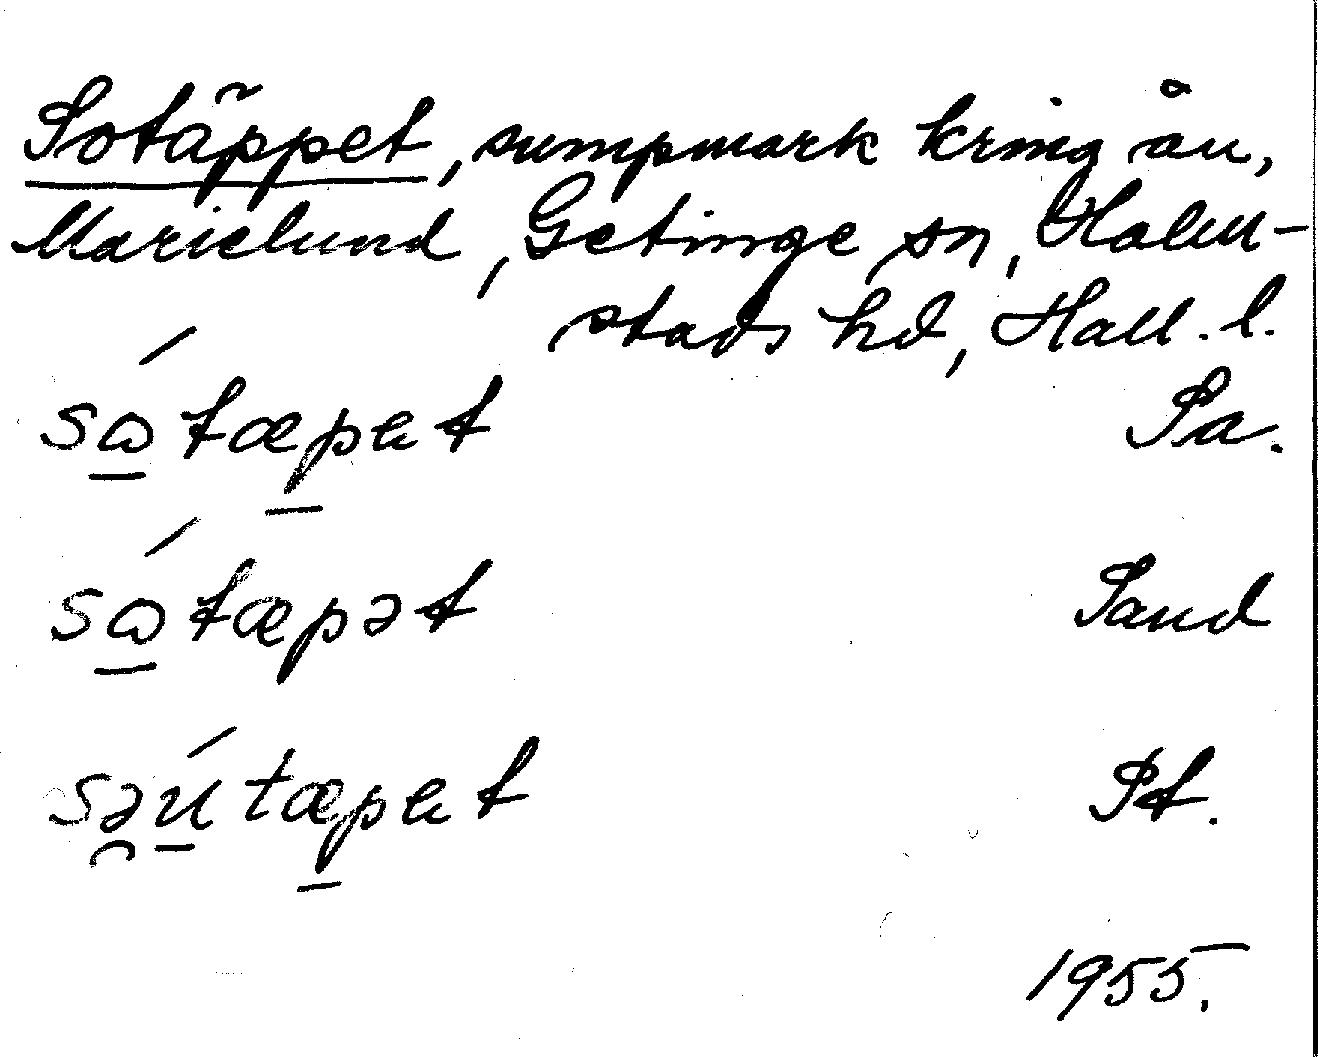 Sotäppet, sumpmark kring ån,
Marielund, Getinge sn, Halm-
stads hd, Hall. l.
sώ̲tæp̲et Sa.
sώ̲tæpət Sand
sə̯ú̲tæp̲et St.
1955.